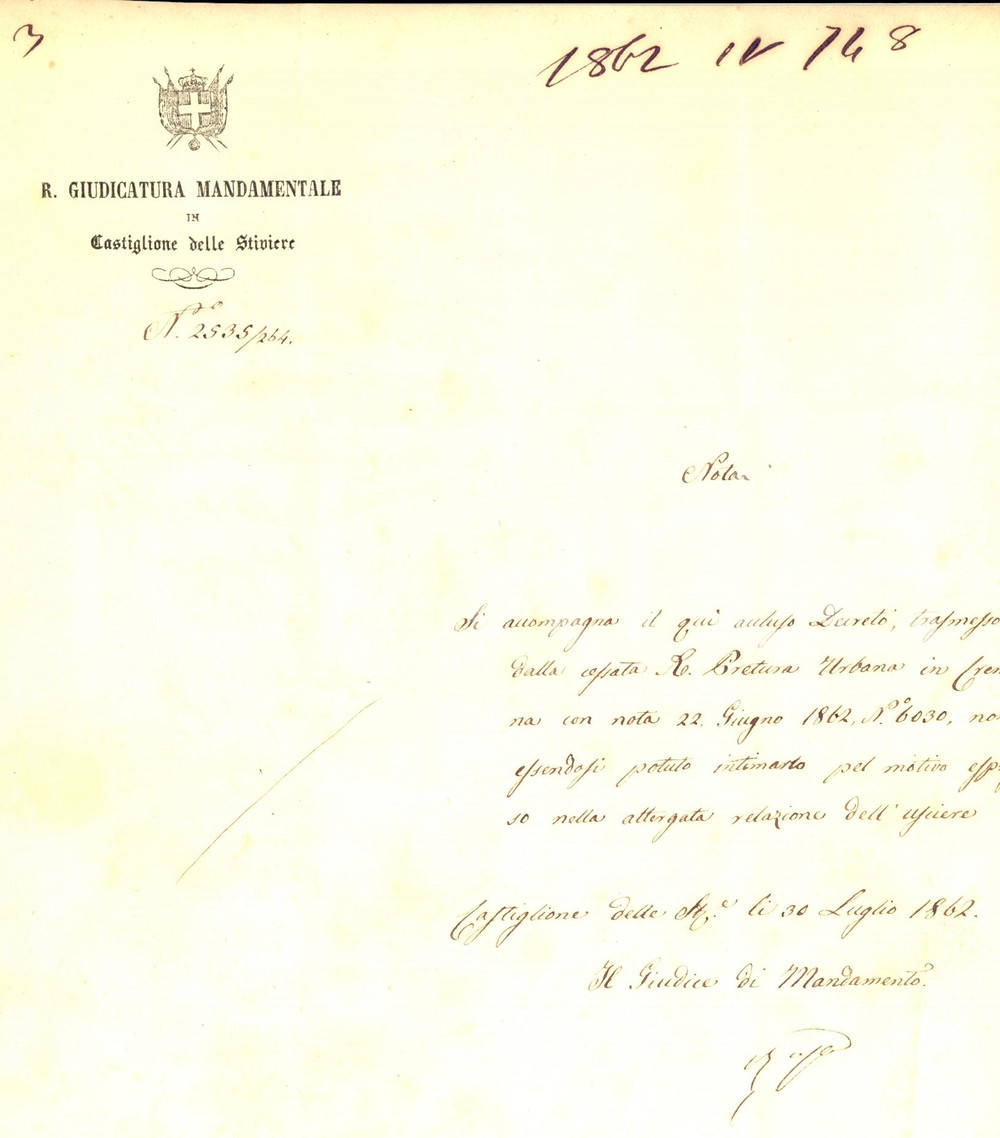 3
1862 IV 748
R. GIUDICATURA MANDAMENTALE
IN
Castiglione delle Stiviere
N.º 2535/264.
Nota
Si accompagna il qui accluso Decreto, trasmesso
dalla cessata R. Pretura Urbana in Crem
na con nota 22. Giugno 1862, N.º 6030, no
essendosi potuto intimarlo pel motivo esp
so nella attergata relazione dell' usciere
Castiglione delle St.e li 30 Luglio 1862.
Il Giudice di Mandamento.